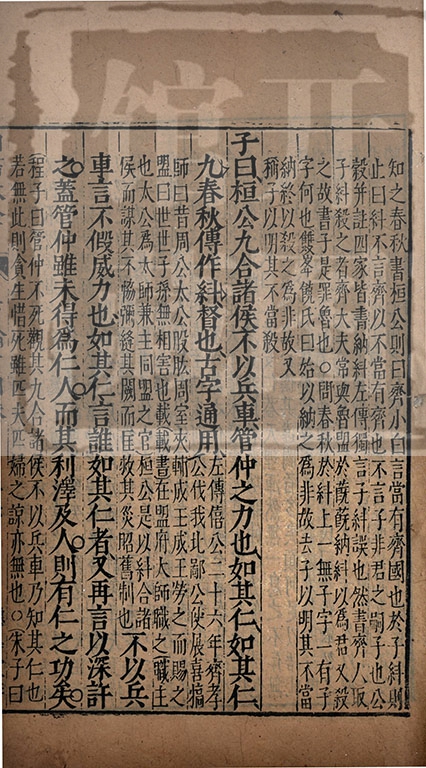 知之春秋書桓公則曰齊小白言當有齊國也於子糾則
止曰糾不言齊以不當有齊也不言子非君之嗣子也公
穀并註四家皆書納糾左傳獨言子糾誤也然書齊人取
子糾殺之者齊大夫常與魯盟於蔇蔇納糾以爲君又殺
之故書子是罪魯也○問春秋於糾上一無子字一有子
字何也雙峯饒氏曰始以納之爲非故去子以明其不當
納終以殺之爲非故又
稱子以明其不當殺
子曰桓公九合諸侯不以兵車管仲之力也如其仁如其仁
九春秋傳作糾督也古字通用
左傳僖公二十六年齊孝
公伐我北鄙公使展喜犒
師曰昔周公太公股肱周室夾輔成王成王勞之而賜之
盟曰世世子孫無相害也載載書在盟府大師職之職主
也太公爲太師兼主同盟之官桓公是以糾合諸
侯而謀其不協彌縫其闕而匡救其災昭舊制也
不以兵
車言不假威力也如其仁言誰如其仁者又再言以深許
之蓋管仲雖未得爲仁人而其利澤及人則有仁之功矣
程子曰管仲不死觀其九合諸侯不以兵車乃知其仁也
若無此則貪生惜死雖匹夫匹婦之諒亦無也○朱子曰